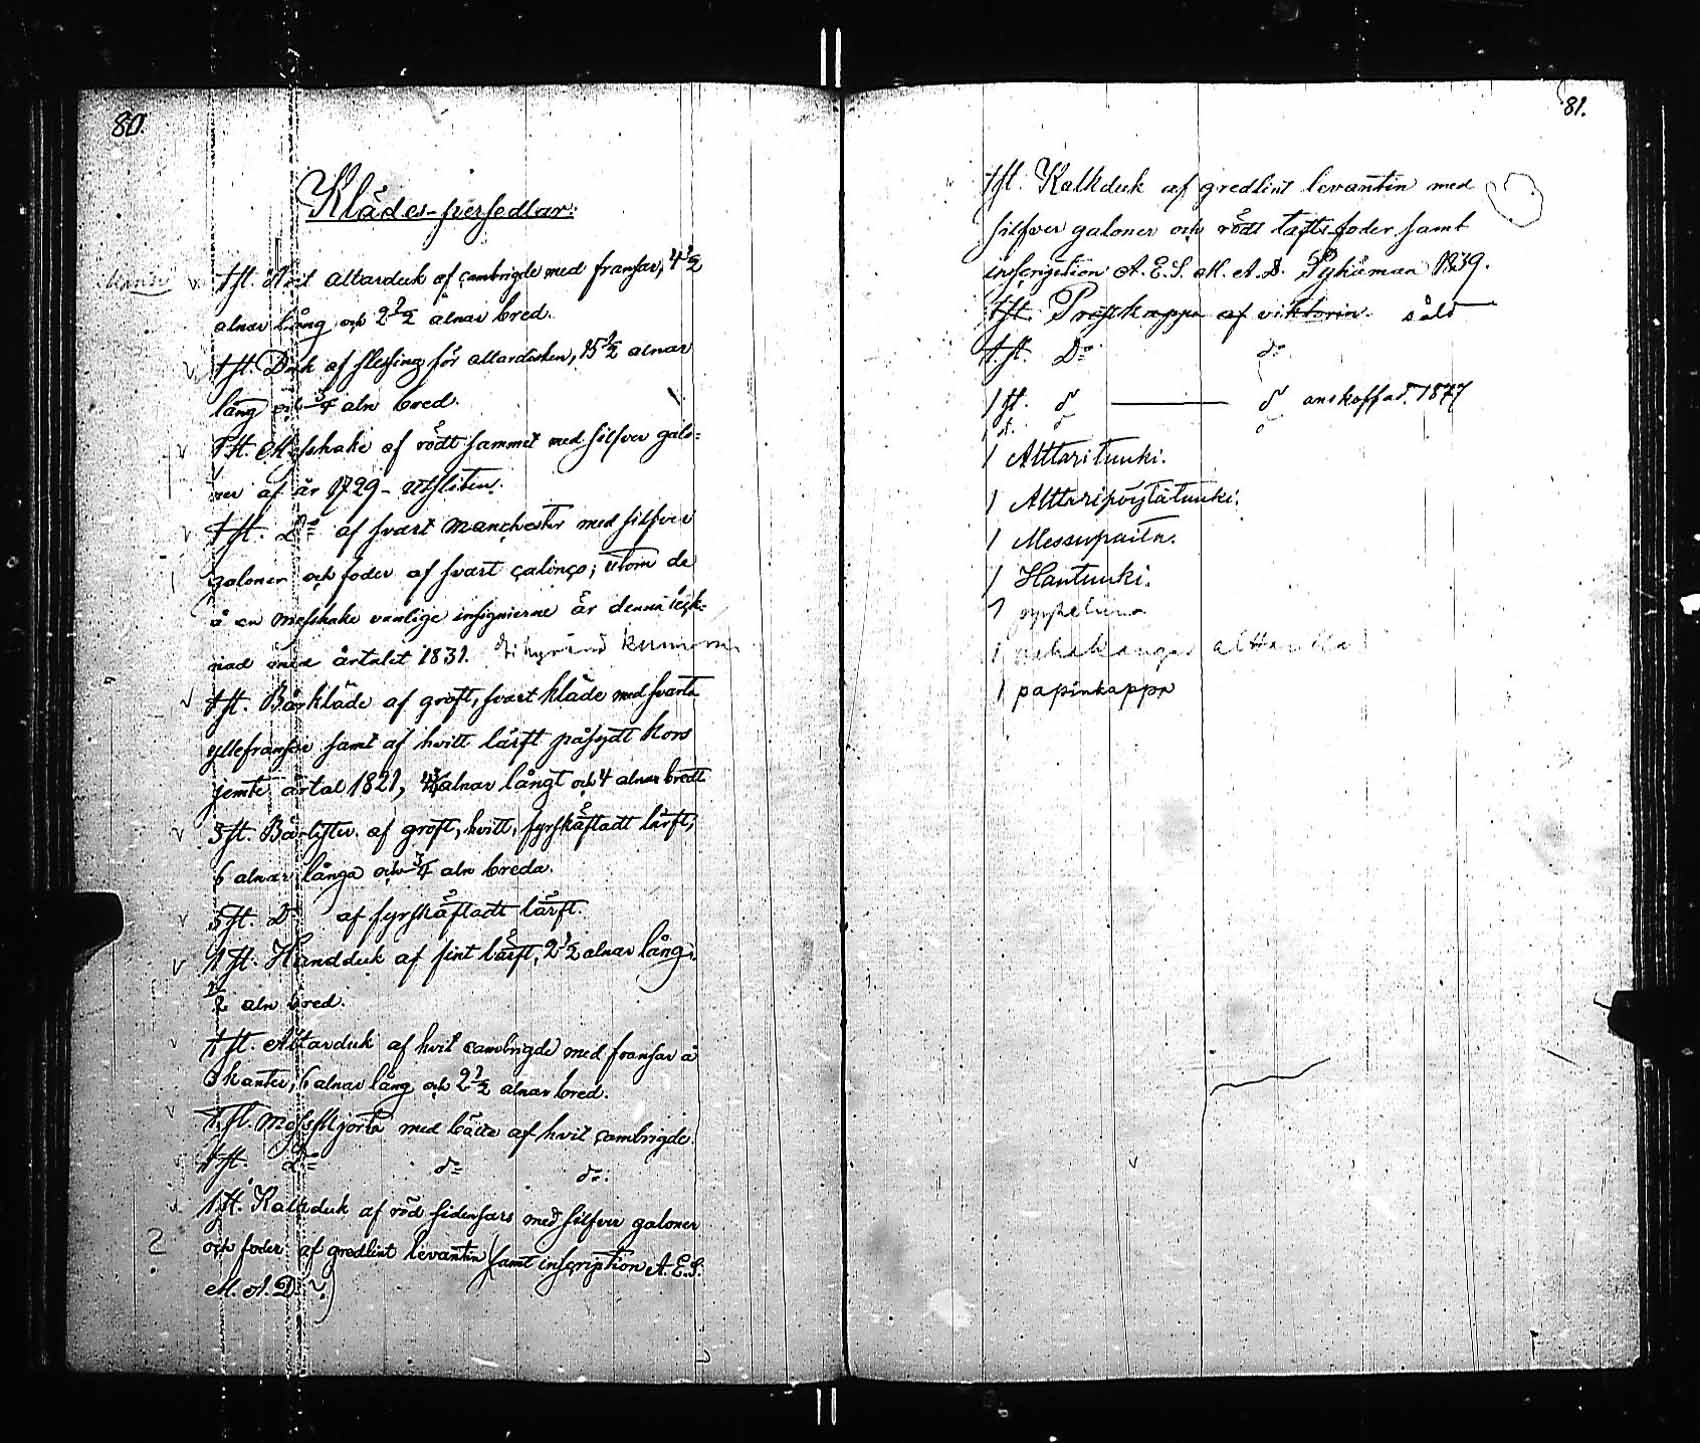 80.
Klädes-persedlar:
1 st. Hvit altarduk af cambrigde med fransar, 4 1/2
alnar lång och 2 1/2 alnar bred.
1 st. Duk af slessing för altardisken, 15 1/2 alnar
lång och 3/4 aln bred.
1 st. Messhake af rödt sammet med silfver galo=
ner af år 1729 - utsliten.
1 st. Do af svart manchester med silfver
galoner och foder af svart calinco; utom de
å en messhake vanlige insignierne är denna teck-
nad med årtalet 1831.
1 st. Bårkläde af groft, svart kläde med svarta
yllefransar samt af hvitt lärft påsydt kors
jemte årtal 1821, alnar långt och 4 alnar bredt
3 st. Bårlister af groft, hvitt, fyrskäftadt lärft,
6 alnar långa och 3/4 aln breda.
3 st. Do af fyrskäftadt lärft.
1 st. Handduk af fint lärft, 2 1/2 alnar lång,
1/2 aln bred.
1 st. Altarduk af hvit cambrigde med fransar å
3 kanter, 6 alnar lång och 2 1/2 alnar bred.
1 st. Messskjorta med bälte af hvit cambrigde.
1 st. Do do do.
1 st. Kalkduk af röd sidensars med silfver galoner
? och foder af gredlint levantin (samt inscription A. E. S.
M. A. D. ?)
81.
1 st. Kalkduk af gredlint levantin med
silfver galoner och rödt tafts foder samt
inscription A. E. S. M. A. D. Pyhämaa 1839.
1 st. Prestkappa af viktorin. såld
1 st. Do do
1 st. d d anskaffad. 1877
1 st.
1 Alttarituuki.
1 Alttaripöytätuuki.
1 Messupaita.
1 Hantuuki.
1
1 alttarilla
1 papinkappa